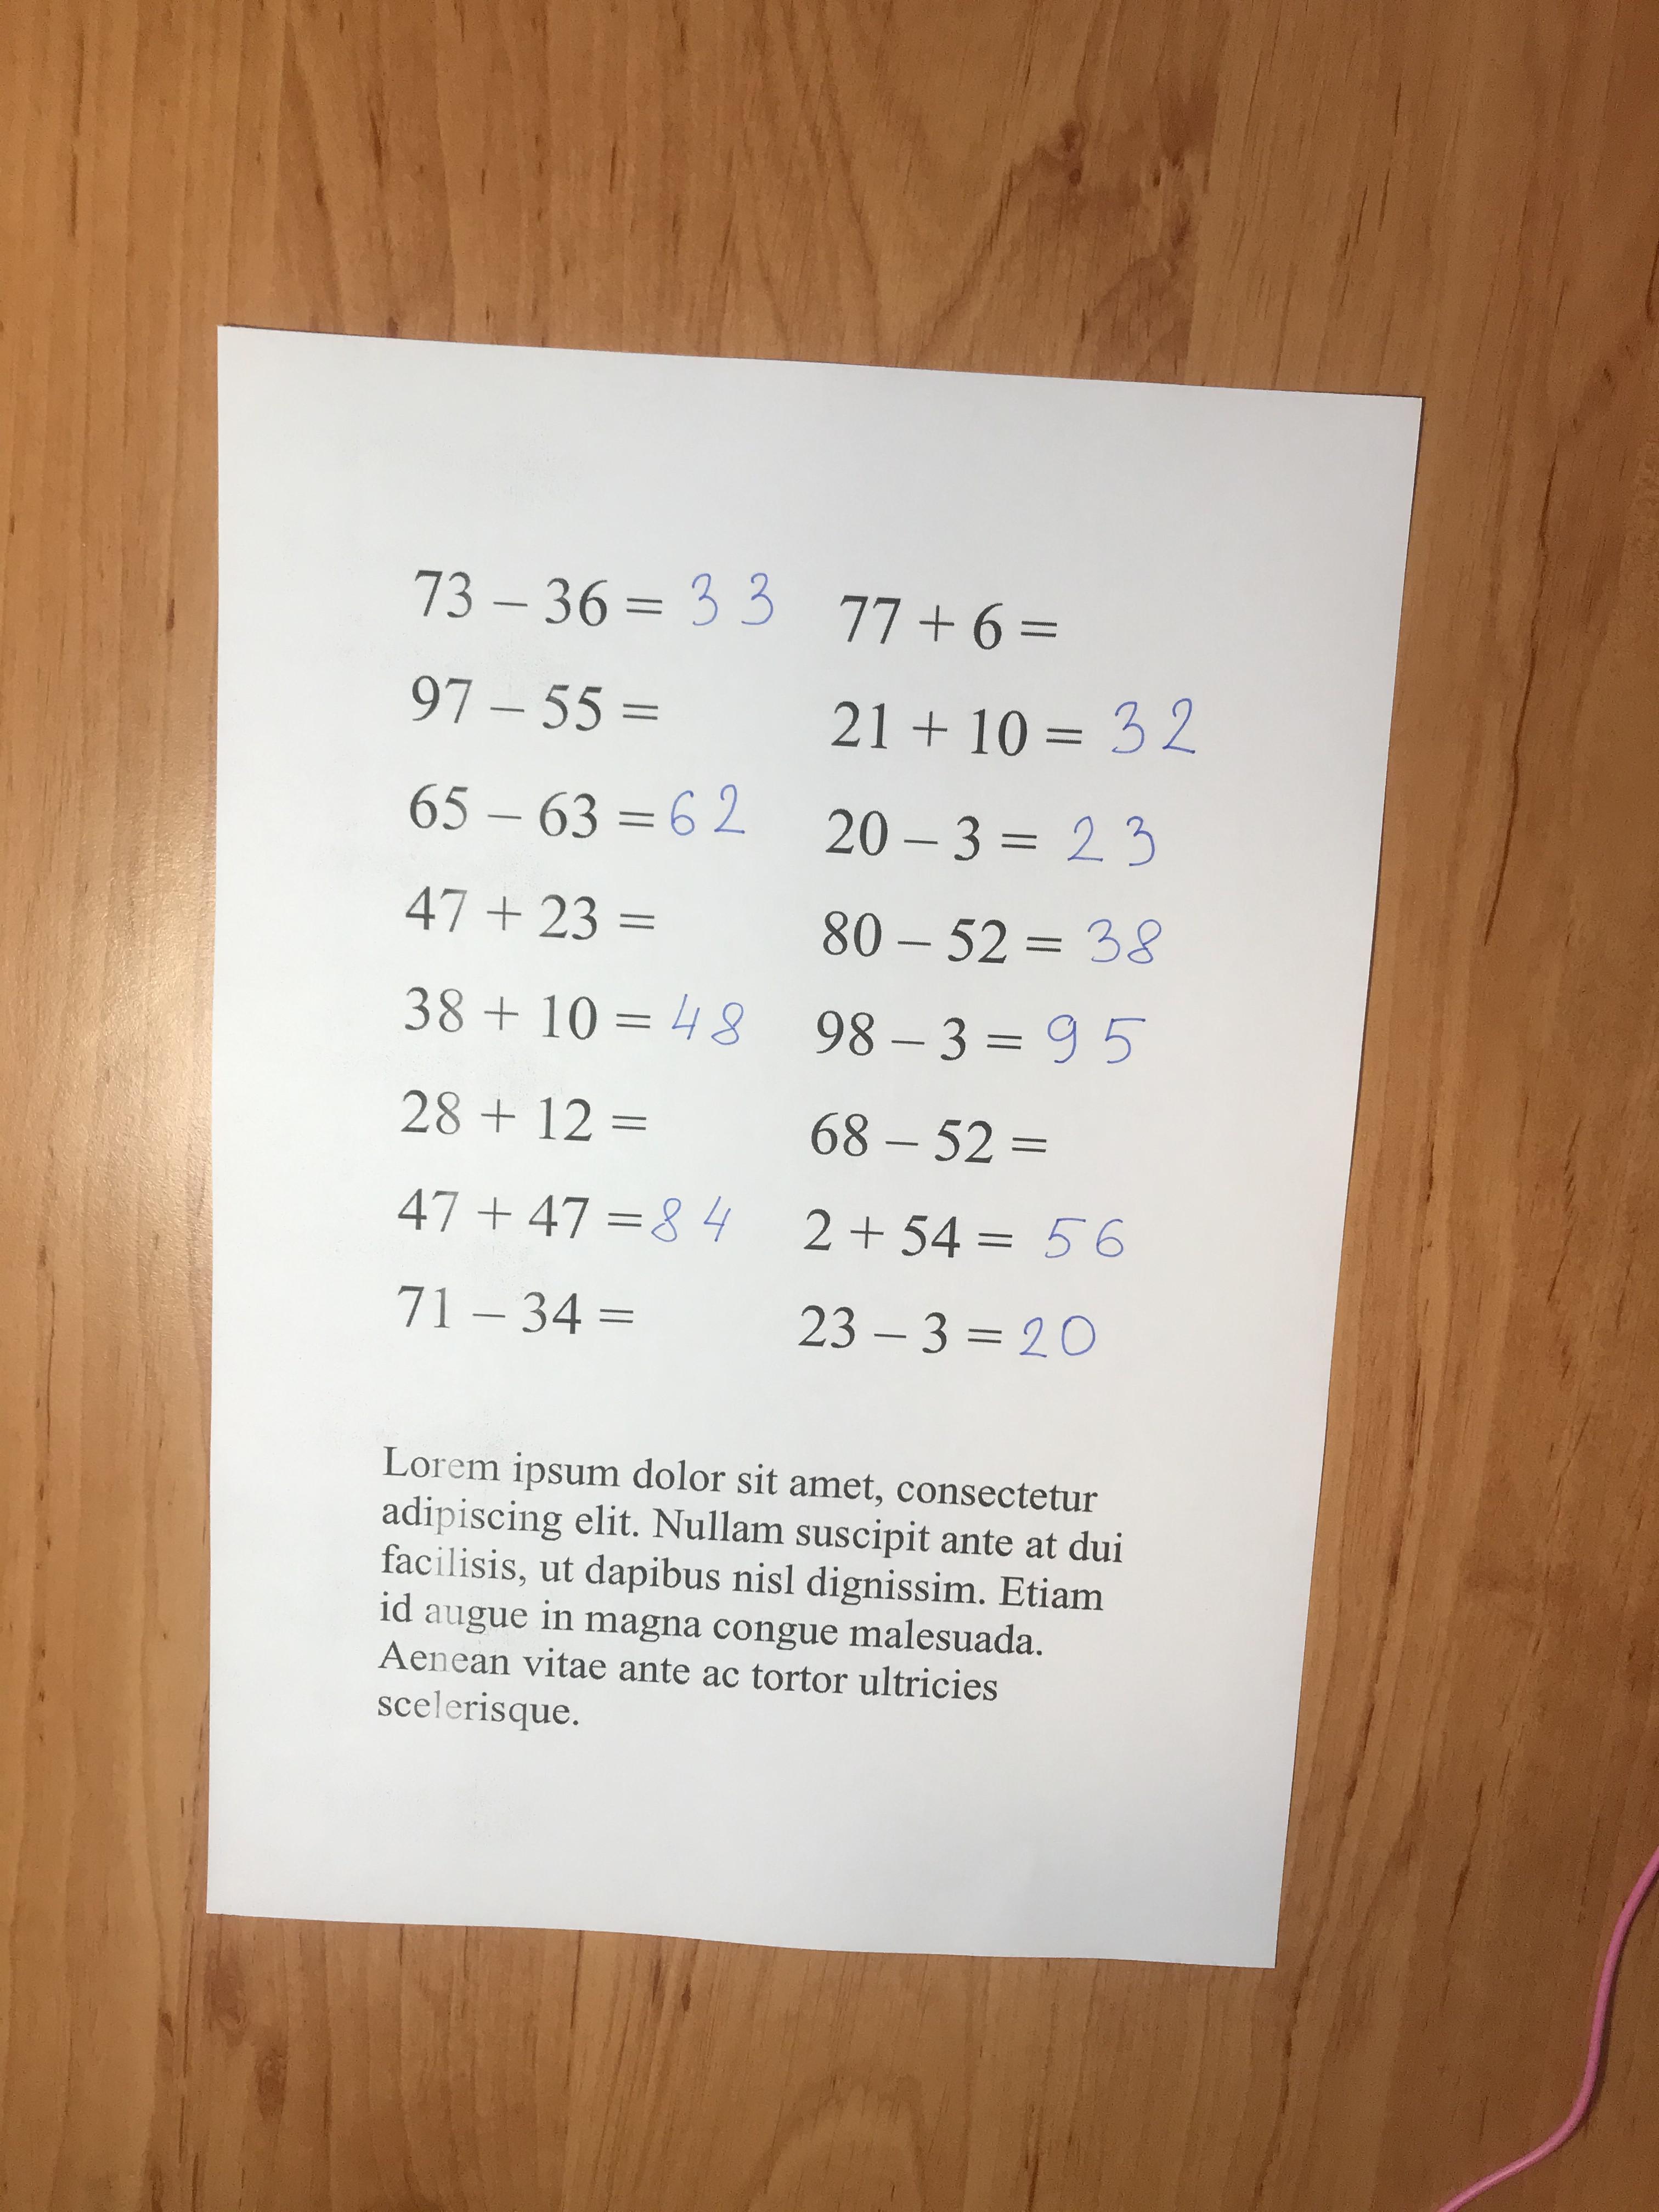 73 – 36 = 33
97 – 55 =
65 – 63 = 62
47 + 23 =
38 + 10 = 48
28 + 12 =
47 + 47 = 84
71 – 34 =
77 + 6 =
21 + 10 = 32
20 – 3 = 23
80 – 52 = 38
98 – 3 = 95
68 – 52 =
2 + 54 = 56
23 – 3 = 20
Lorem ipsum dolor sit amet, consectetur
adipiscing elit. Nullam suscipit ante at dui
facilisis, ut dapibus nisl dignissim. Etiam
id augue in magna congue malesuada.
Aenean vitae ante ac tortor ultricies
scelerisque.